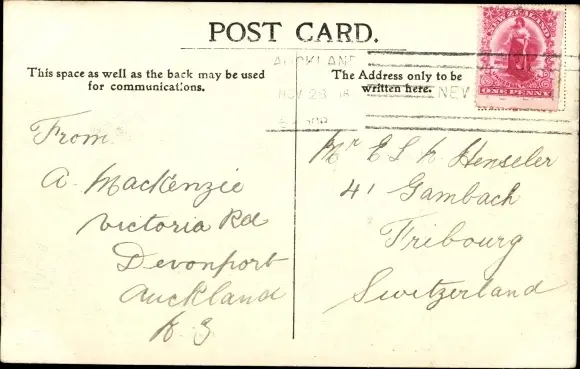 POST CARD.
This space as well as the back may be used
for communications.
The Address only to be
written here.
AUCKLAND
NOV 23
NEW
NEW ZEALAND
ONE PENNY
From
A. Mackenzie
Victoria Rd
Devonport
Auckland
N Z
Mr E L K Henseler
41 Gambach
Fribourg
Switzerland